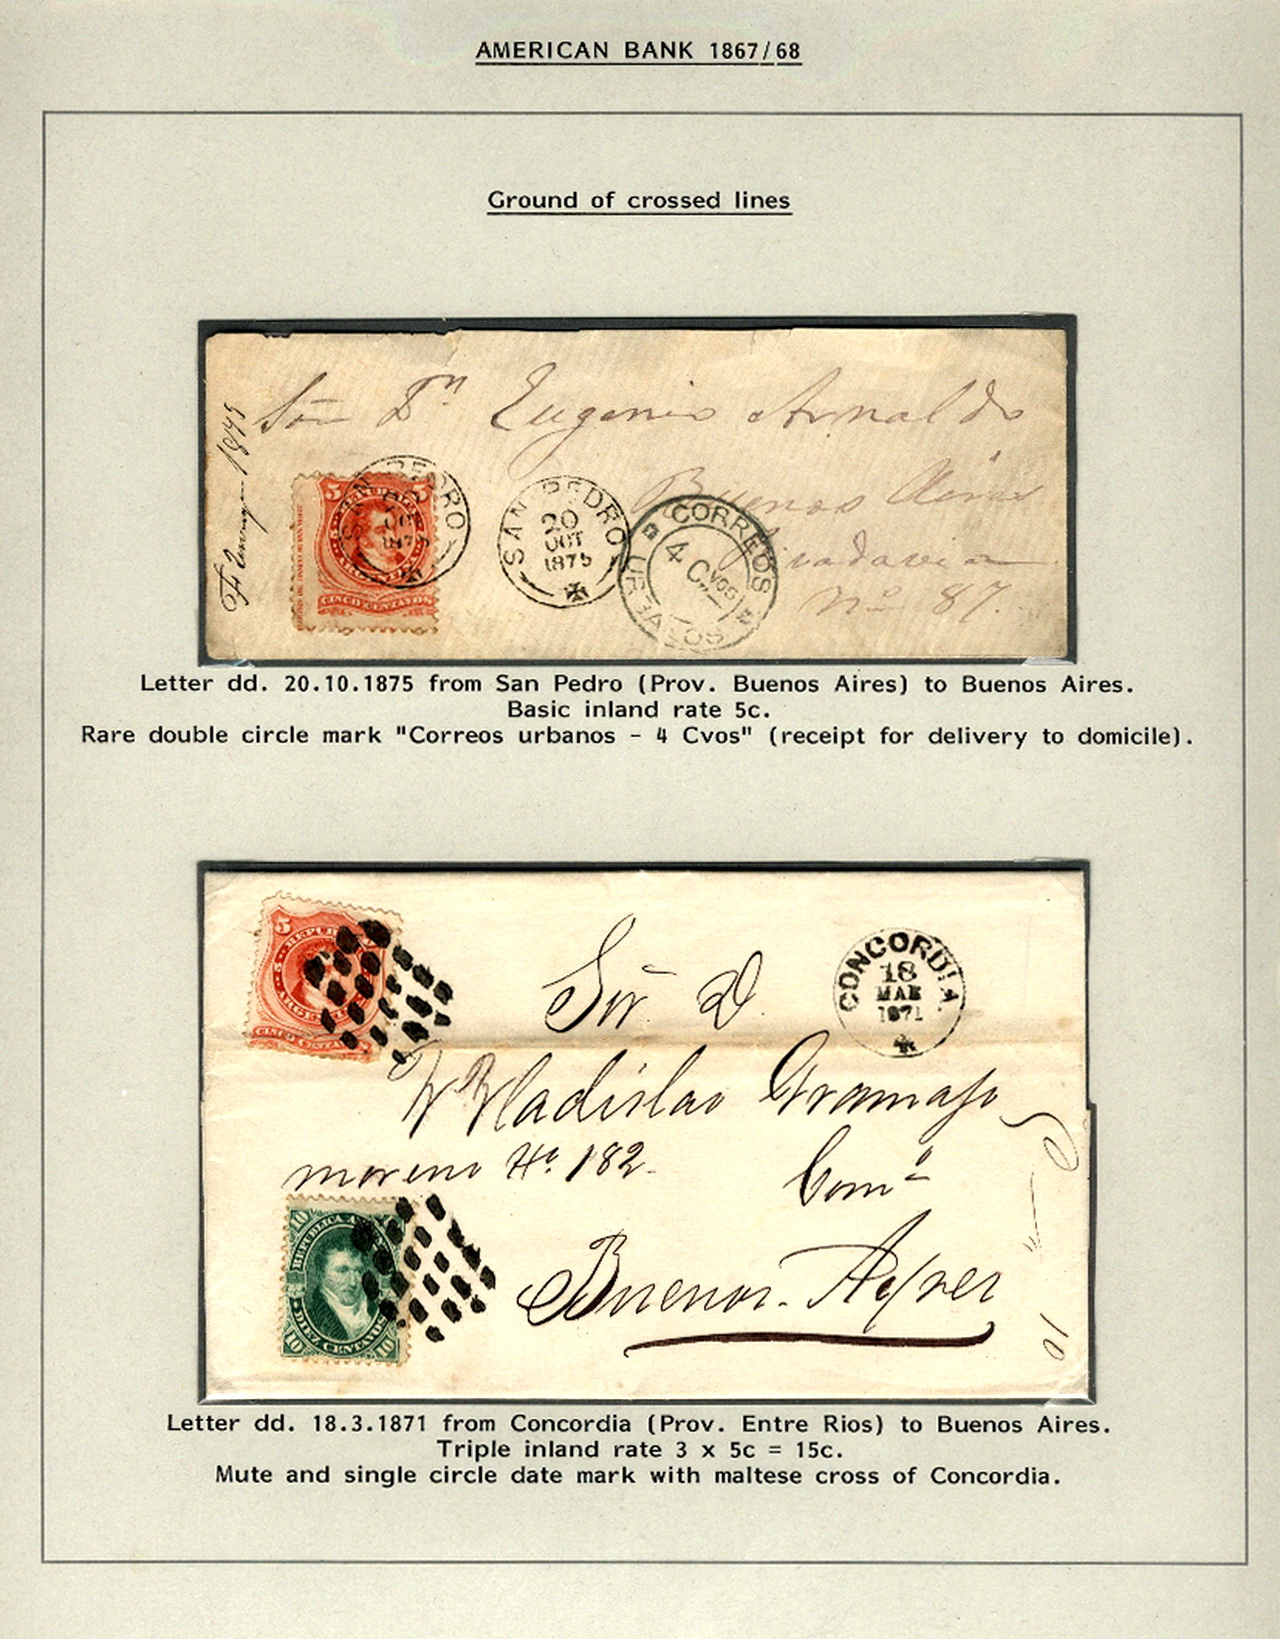 AMERICAN BANK 1867/68
Ground of crossed lines
Sor Dn Eugenio Arnaldo
Buenos Aires
Rivadavia
No 87.
5 5
CINCO CENTAVOS
SAN PEDRO
20
OCT
1875
SAN PEDRO
20
OCT
1875
CORREOS
4 Cvos
URBANOS
Letter dd. 20.10.1875 from San Pedro (Prov. Buenos Aires) to Buenos Aires.
Basic inland rate 5c.
Rare double circle mark "Correos urbanos - 4 Cvos" (receipt for delivery to domicile).
5
CINCO
CONCORDIA
18
MAR
1871
Sor. D.
Wladislao Gramajo
moreno No. 182.
Comо
Buenos. Ayres
10
10
REPUBLICA
DIEZ CENTAVOS
10 10
Letter dd. 18.3.1871 from Concordia (Prov. Entre Rios) to Buenos Aires.
Triple inland rate 3 x 5c = 15c.
Mute and single circle date mark with maltese cross of Concordia.